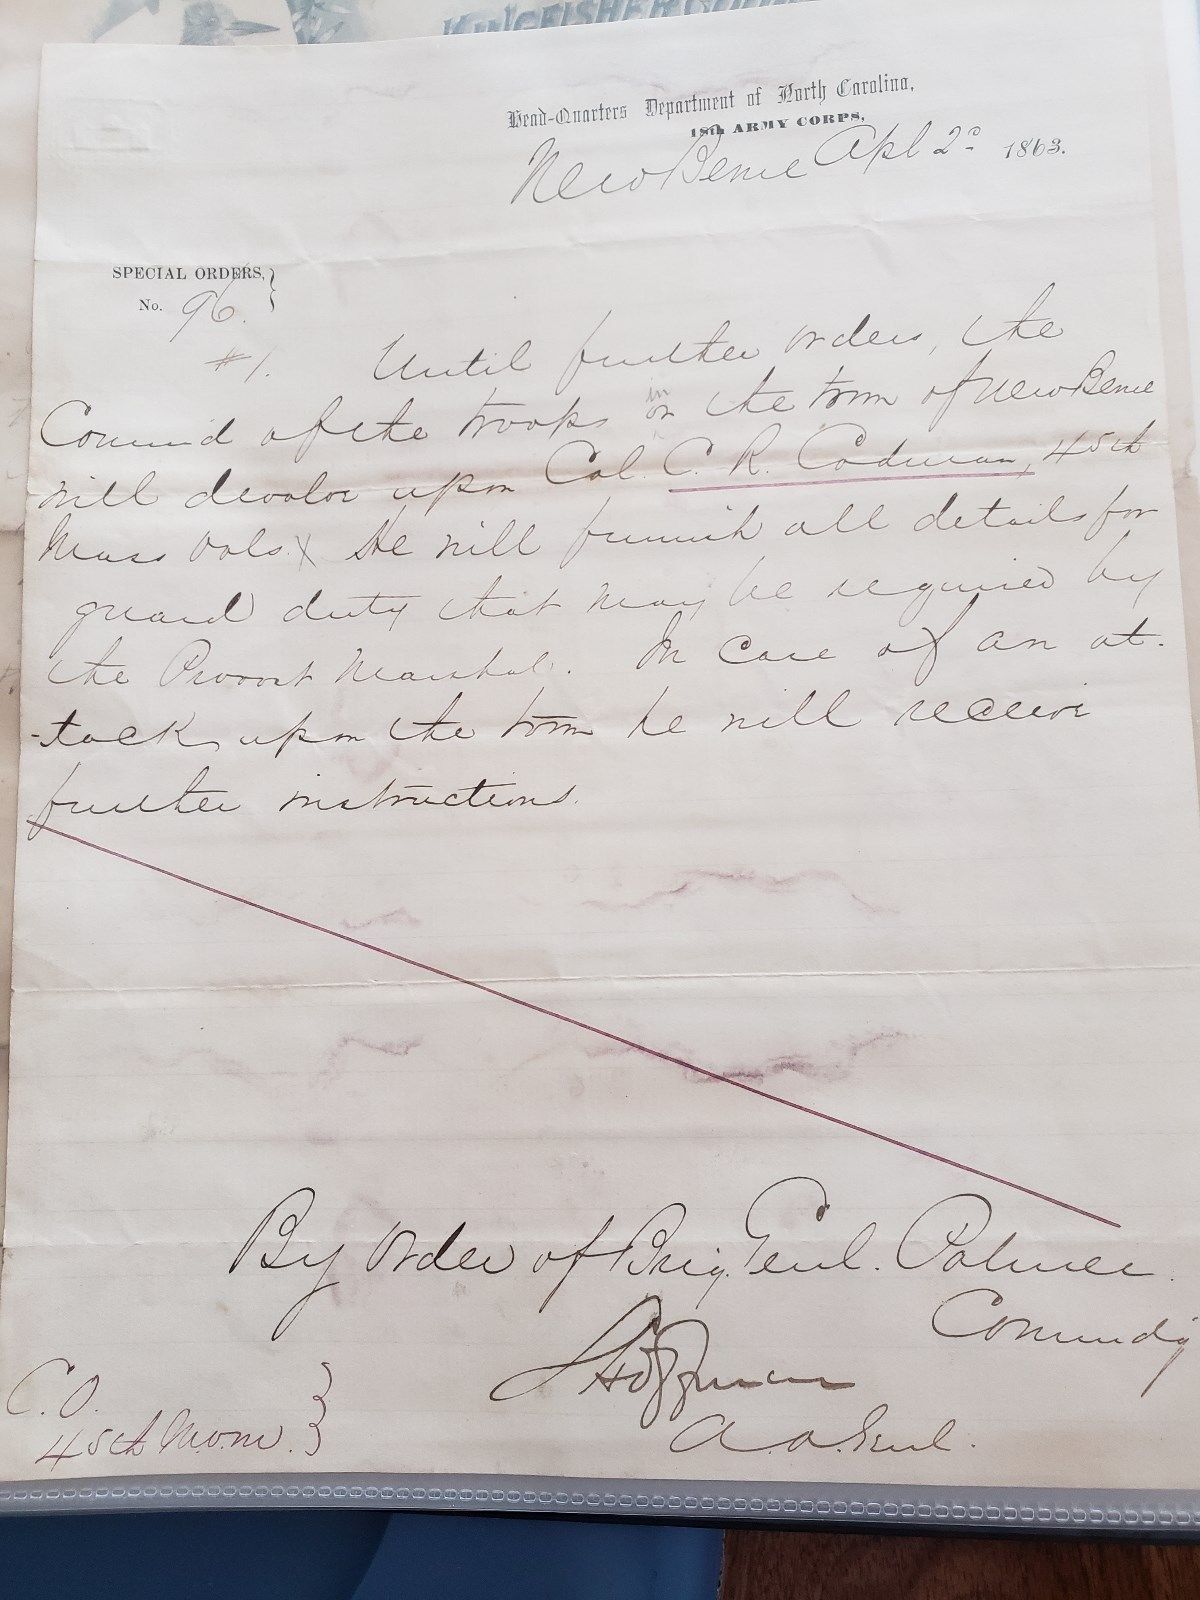 KINGFISHER
Head-Quarters Department of North Carolina,
18th ARMY CORPS,
New Berne Apl 2d 1863.
SPECIAL ORDERS,
No. 96.
#1. Until further orders, the
Command of the troops in the town of New Berne
will devolve upon Col. C. R. Codman, 45th
Mass Vols. He will furnish all details for
guard duty that may be required by
the Provost Marshal. In case of an at-
-tack upon the town he will receive
further instructions.
By order of Brig. Genl. Palmer
Commndg
S Hoffman
A. A. Genl.
C. O.
45th M.V.M.